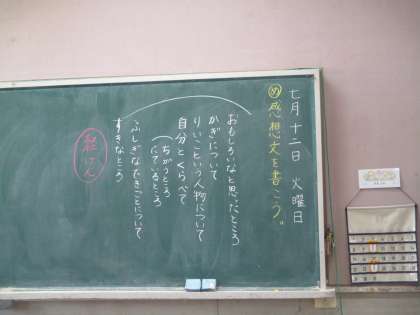 七月十二日 火曜日
め 感想文を書こう。
おもしろいなと思ったところ
かぎについて
りいこという人物について
自分とくらべて
(ちがうところ
にているところ
ふしぎなできごとについて
すきなところ
経けん